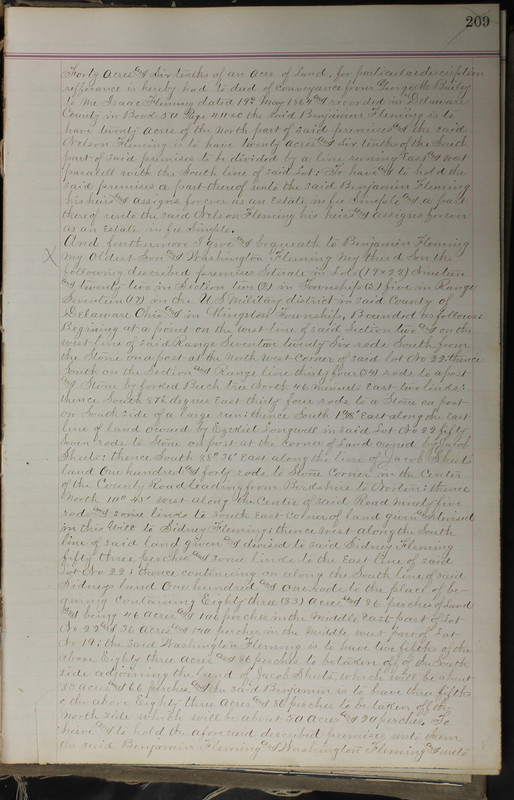 209
Forty Acres and Six tenths of an Acre of Land, for particular description
refference is hereby had to deed of Conveyance from George H Bailey
to Me Isaac Fleming dated 19th May 1864 and recorded in Delaware
County in Book 50 Page the said Benjamin Fleming is to
have twenty acres of the North part of said premises and the said
Nelson Fleming is to have twenty acres and Six tenths of the South
part of said premises to be divided by a line running East and West
paralell with the South line of said Lot: To have and to hold the
said premises a part thereof unto the said Benjamin Fleming
his heirs and assigns forever as an Estate in fee Simple and a part
thereof unto the said Nelson Fleming his heirs and assigns forever
as an Estate in fee Simple.
And furthermore I give and bequeath to Benjamin Fleming
my Oldest Son and Washington Fleming My third Son the
following described premises Situate in Lots (19 & 22) Nineteen
and twenty two in Section two (2) in Township (5) five in Range
Seventeen (17) in the U S Military district in said County of
Delaware Ohio and in Kingston Township, Bounded as follows:
Begining at a point on the west line of said Section two and on the
west line of said Range Seventeen twenty Six rods South from
the Stone on a post at the North West Corner of said lot No 22: thence
South on the Section and Range line thirty four (34) rods to a post
and Stone by forked Beech tree North 46 East two links:
thence South 87½ degrees East thirty four rods to a Stone on post
on South side of a large run: thence South East along the East
line of land owned by Ezekiel Longwell in said Lot No 22 fifty
Seven rods to Stone on post at the corner of Land owned by Jacob
Sheets: thence South 88° 36' East along the line of Jacob Sheets
land One hundred and forty rods, to Stone Corner in the Center
of the County Road leading from Berkshire to Norton: thence
North 10° 45' West along the Centre of said Road ninety five
rods and some links to South East Corner of land given and devised
in this Will to Sidney Fleming: thence West along the South
line of said land given and devised to said Sidney Fleming
fifty three perches and some links to the East line of said
Lot No 22: thence continuing on along the South line of said
Sidneys land One hundred and one rods to the place of be-
gining Containing Eighty three (83) Acres and 86 perches of Land
and being 46 Acres and 106 perches in the Middle East part of Lot
No 22 and 36 Acres and 140 perches in the Middle west part of Lot
No 19: the said Washington Fleming is to have two fifths of the
above Eighty three acres and 86 perches to be taken off of the South
side adjoining the land of Jacob Sheets which will be about
33 acres and 66 perches, and the said Benjamin is to have three fifths
of the above Eighty three Acres and 86 perches to be taken of the
North side which will be about 50 Acres and 20 perches. To
have and to hold the aforesaid described premises unto them
the said Benjamin Fleming and Washington Fleming and unto